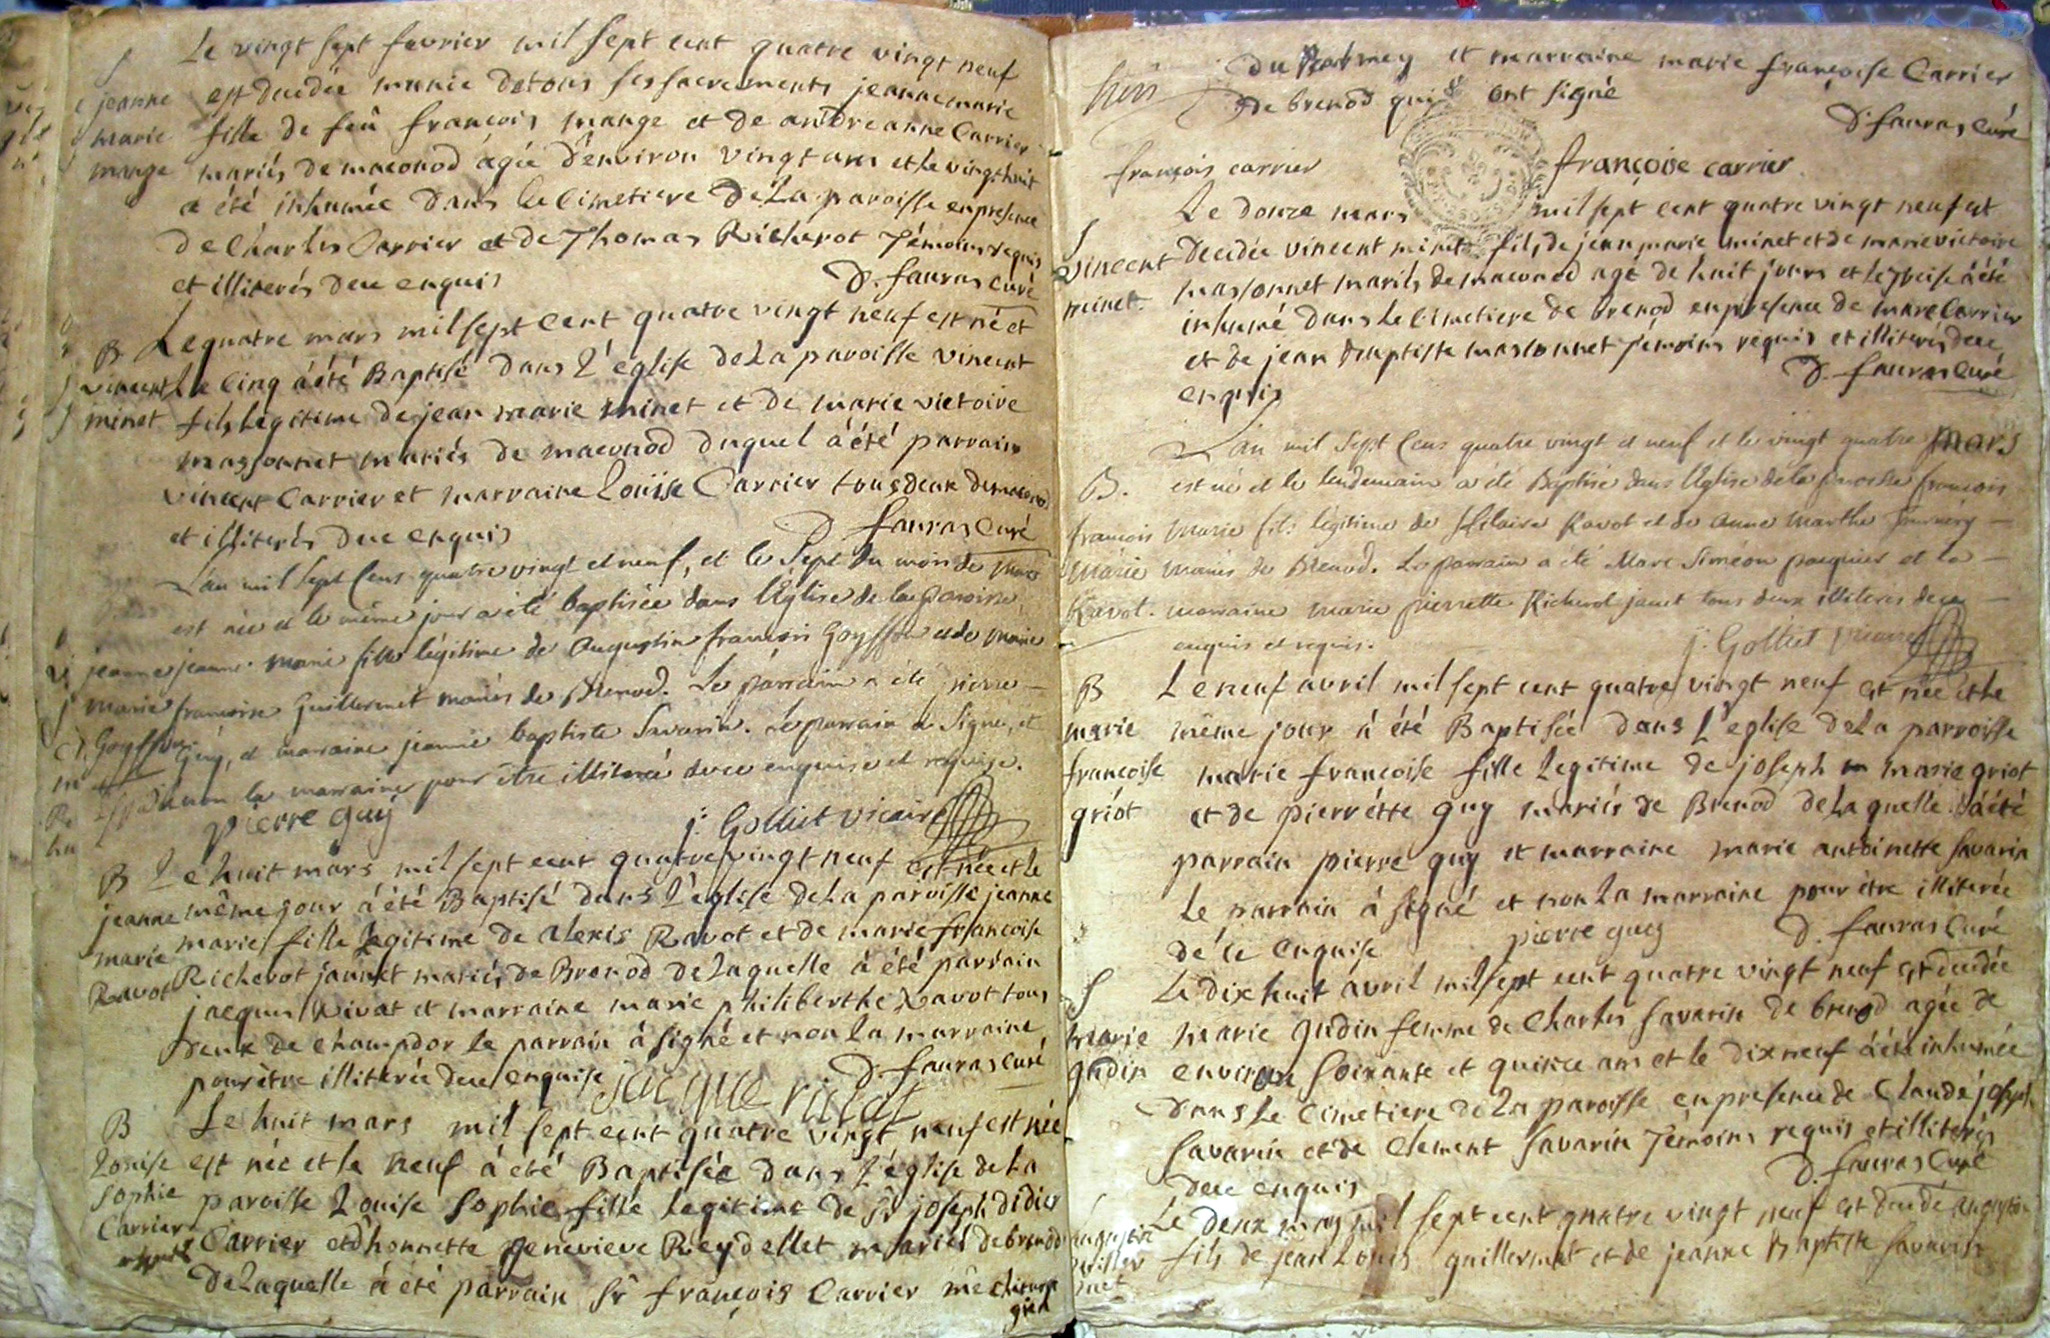 S
jeanne
marie
mange
Le vingt sept fevrier mil sept cent quatre vingt neuf
est decedée munie de tous ses sacrements jeanne marie
fille de feû françois mange et de andreanne Carrier
mariés de maconod âgée d'environ vingt ans et le vingt huit
a été inhumée dans le cimetiere de La paroisse en presence
de Charles Carrier et de Thomas Richerot témoins requis
et illiterés de ce enquis
D. fauras curé
B
vincent
minet
Le quatre mars mil sept cent quatre vingt neuf est né et
Le cinq à été Baptisé dans L'église de La paroisse vincent
fils legitime de jean marie minet et de marie victoire
massonnet mariés de maconod duquel à été parrain
vincent Carrier et marraine Louise Carrier tous deux de maconod
et illiterés de ce enquis
D fauras curé
jeanne
marie
Goyffon
L'an mil sept cens quatre vingt et neuf, et le sept du mois de mars
est née et le même jour a été baptisée dans l'Église de la paroisse
jeanne marie fille légitime de Augustin françois Goyffon et de marie
françoise Guillermet mariés de Brenod. Le parrain a été pierre
Guy, et marraine jeanne baptiste Savarin. Le parrain a signé, et
non la marraine pour être illiterée de ce enquise et requise.
pierre guy
j. Golliet vicaire
B
jeanne
marie
Ravot
Le huit mars mil sept cent quatre vingt neuf est née et le
même jour à été Baptisé dans L'église de La paroisse jeanne
marie fille legitime de alexis Ravot et de marie françoise
Richerot jannet mariés de Brenod de laquelle à été parrain
jacques Rivat et marraine marie philiberthe Ravot tous
deux de champdor le parrain à signé et non la marraine
pour être illiterée de ce enquise
D. fauras curé
jacque rivat
B
Louise
sophie
Carrier
Le huit mars mil sept cent quatre vingt neuf est née
est née et le neuf à été Baptisée dans L'église de La
paroisse Louise sophie fille legitime de Sr joseph didier
Carrier et d'honnette genevieve Reydellet mariés de brenod
de Laquelle à été parrain Sr françois Carrier me chirur
gien
du et marraine marie françoise Carrier
de brenod qui ont signé
D. fauras curé
françois carrier
françoise carrier
S
vincent
minet
Le douze mars mil sept cent quatre vingt neuf est
decedée vincent minet fils de jean marie minet et de marie victoire
massonnet mariés de maconod agé de huit jours et le treise à été
inhumé dans le cimetiere de brenod en presence de marc Carrier
et de jean Baptiste massonnet témoins requis et illiterés de ce
enquis
D. fauras curé
B.
françois
marie
Ravot.
L'an mil sept cens quatre vingt et neuf et le vingt quatre mars
est né et le lendemain a été Baptisé dans l'Eglise de la paroisse françois
marie fils légitime de hilaire Ravot et de anne marthe
mariés de Brenod. Le parrain a été Marc Siméon pasquier et la
marraine marie pierrette Richerot janet tous deux illiteres de ce
enquis et requis.
j. Golliet vicaire
B
marie
francoise
griot
Le neuf avril mil sept cent quatre vingt neuf est née et le
même jour à été Baptisée dans L'eglise de La parroisse
marie francoise fille Legitime de joseph marie griot
et de pierrette guy mariés de Brenod de laquelle à été
parrain pierre guy et marraine marie antoinette savarin
Le parrain à signé et non La marraine pour être illiterée
de ce enquise
pierre guy
D. fauras curé
S
marie
gudin
Le dix huit avril mil sept cent quatre vingt neuf est decedée
marie gudin femme de Charles savarin de brenod agée de
environ soixante et quinse ans et le dix neuf à été inhumée
dans le cimetiere de La paroisse en presence de Claude joseph
savarin et de Clement savarin témoins requis et illiterés
de ce enquis
D. fauras curé
augustin
guiller
met
Le deux may mil sept cent quatre vingt neuf est decedé augustin
fils de jean Louis guillermet et de jeanne Baptiste savarin